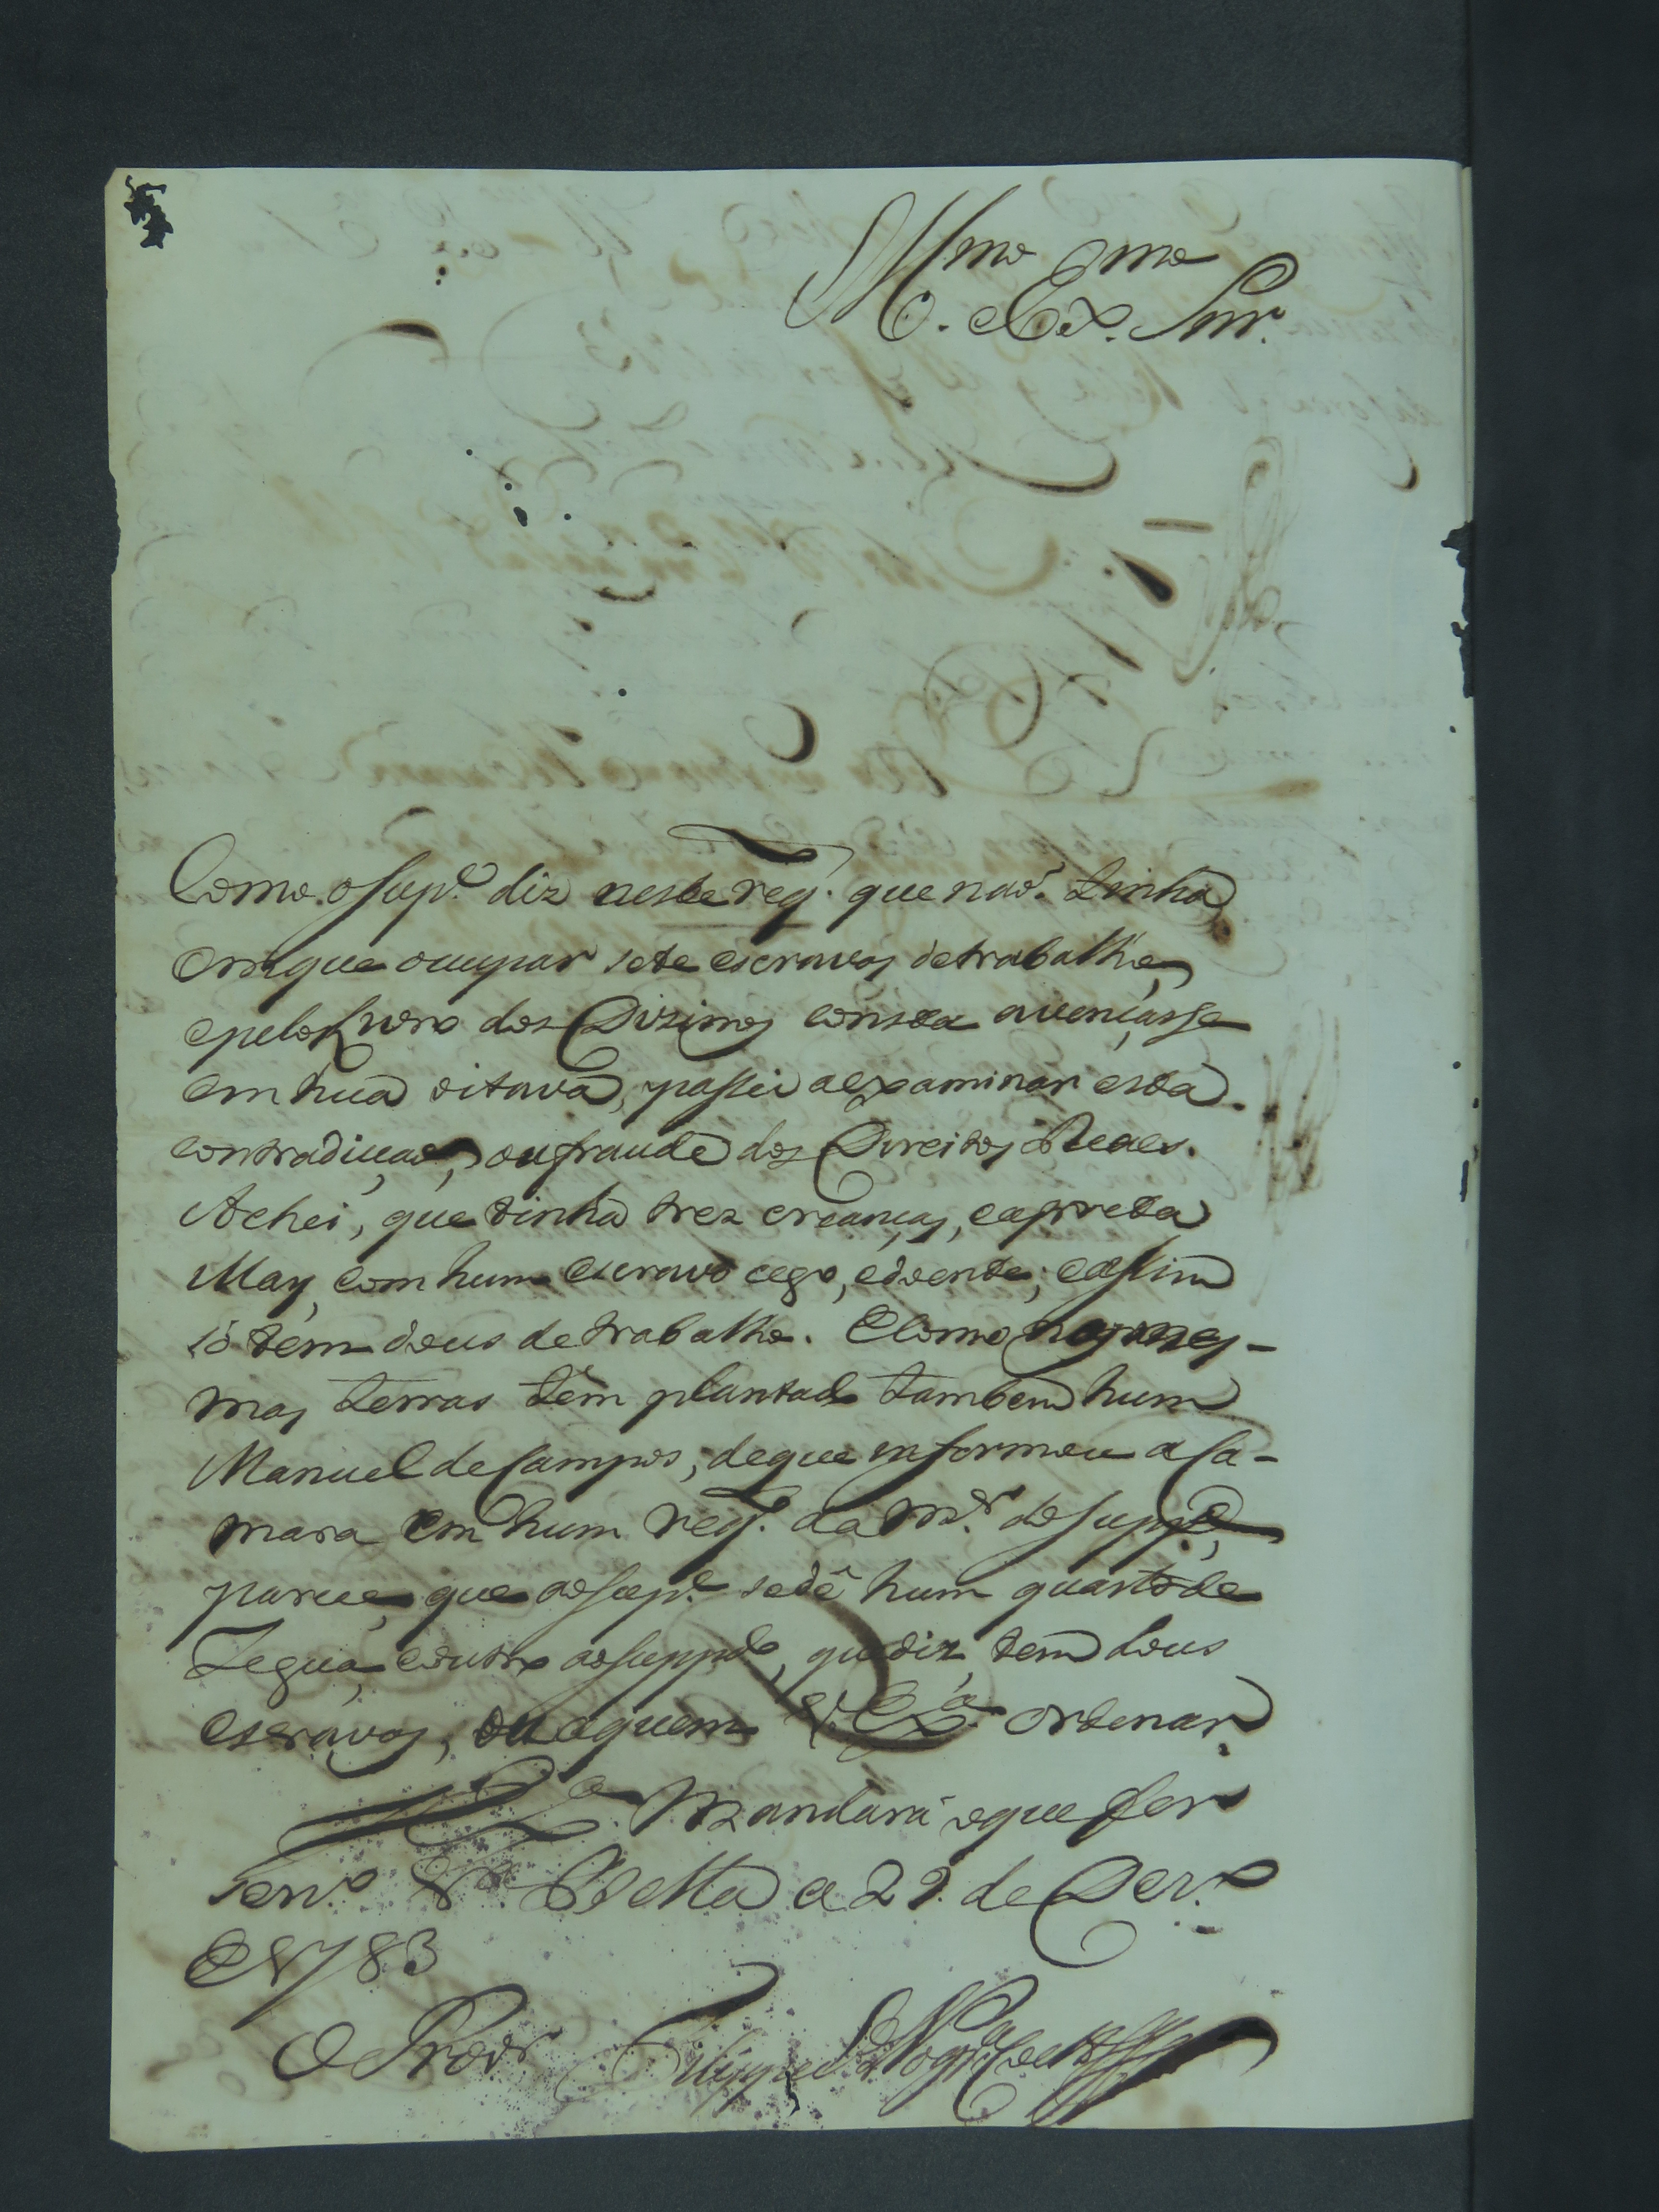 Illmo e Exmo Snr.
Como o Supe. diz neste reqo. que naõ tinha
em que ocupar sete escravos de trabalho,
e pelo Livro dos Dizimos consta avençarse
em huã oitava, passei a examinar esta
contradiçaõ, ou fraude dos Direitos Reaes.
Achei, que tinha trez creanças, e a preta
May, com hum escravo cego, e doente; e assim
só tem dous de trabalho. E como nas mes-
mas terras tem plantado tambem hum
Manuel de Campos, de que informou a Ca-
mara em hum reqo. da mer. do suppo.,
parece, que ao Supe. se dê hum quarto de
Legua, e outro ao suppdo., que diz, tem dous
escravos, ou a quem V. Exa. ordenar.
V. Exa. Mandará o que for
Servo. Va. Bella a 29 de Dezro.
de 1783
O Provor. Filippe Joze Nogra.